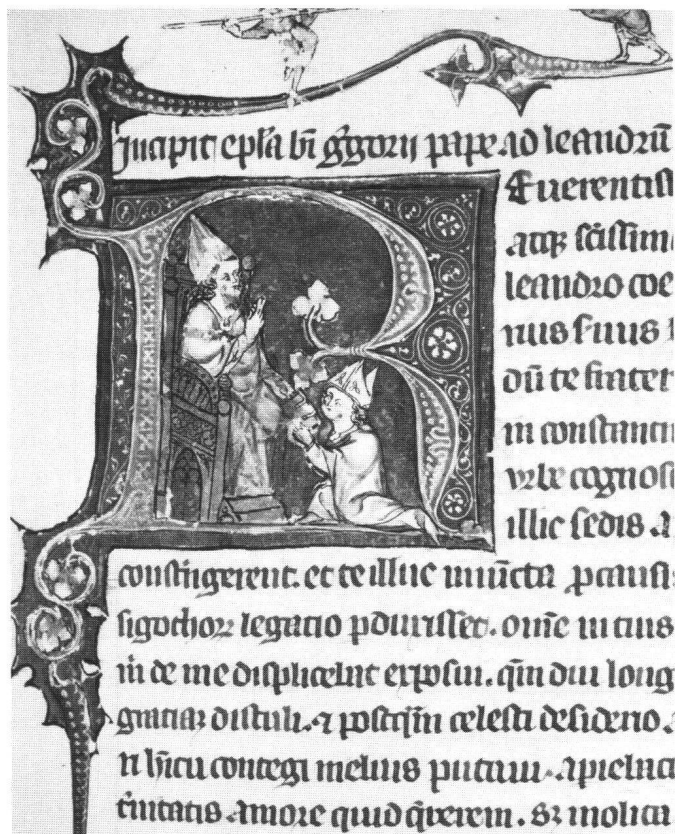 Incipit epl̄a bī ḡgorii pape ad leandrū
Euerentiss
atqꝫ sc̄issim
leandro coe
nus suus
dū te frater
in constanti
vrbe cognosc
illic sedis a
constringerent. et te illuc iniūcta ꝓ causis
sigothoꝝ legatio ꝑduxisset. om̄e in tuis
m̄ de me displicebat exposui. qm̄ diu long
gratiaꝝ distuli. ⁊ postqm̄ celesti desiderio
melius putaui. apiebat
t̄nitatis amore quid q̄rerem. sꝫ